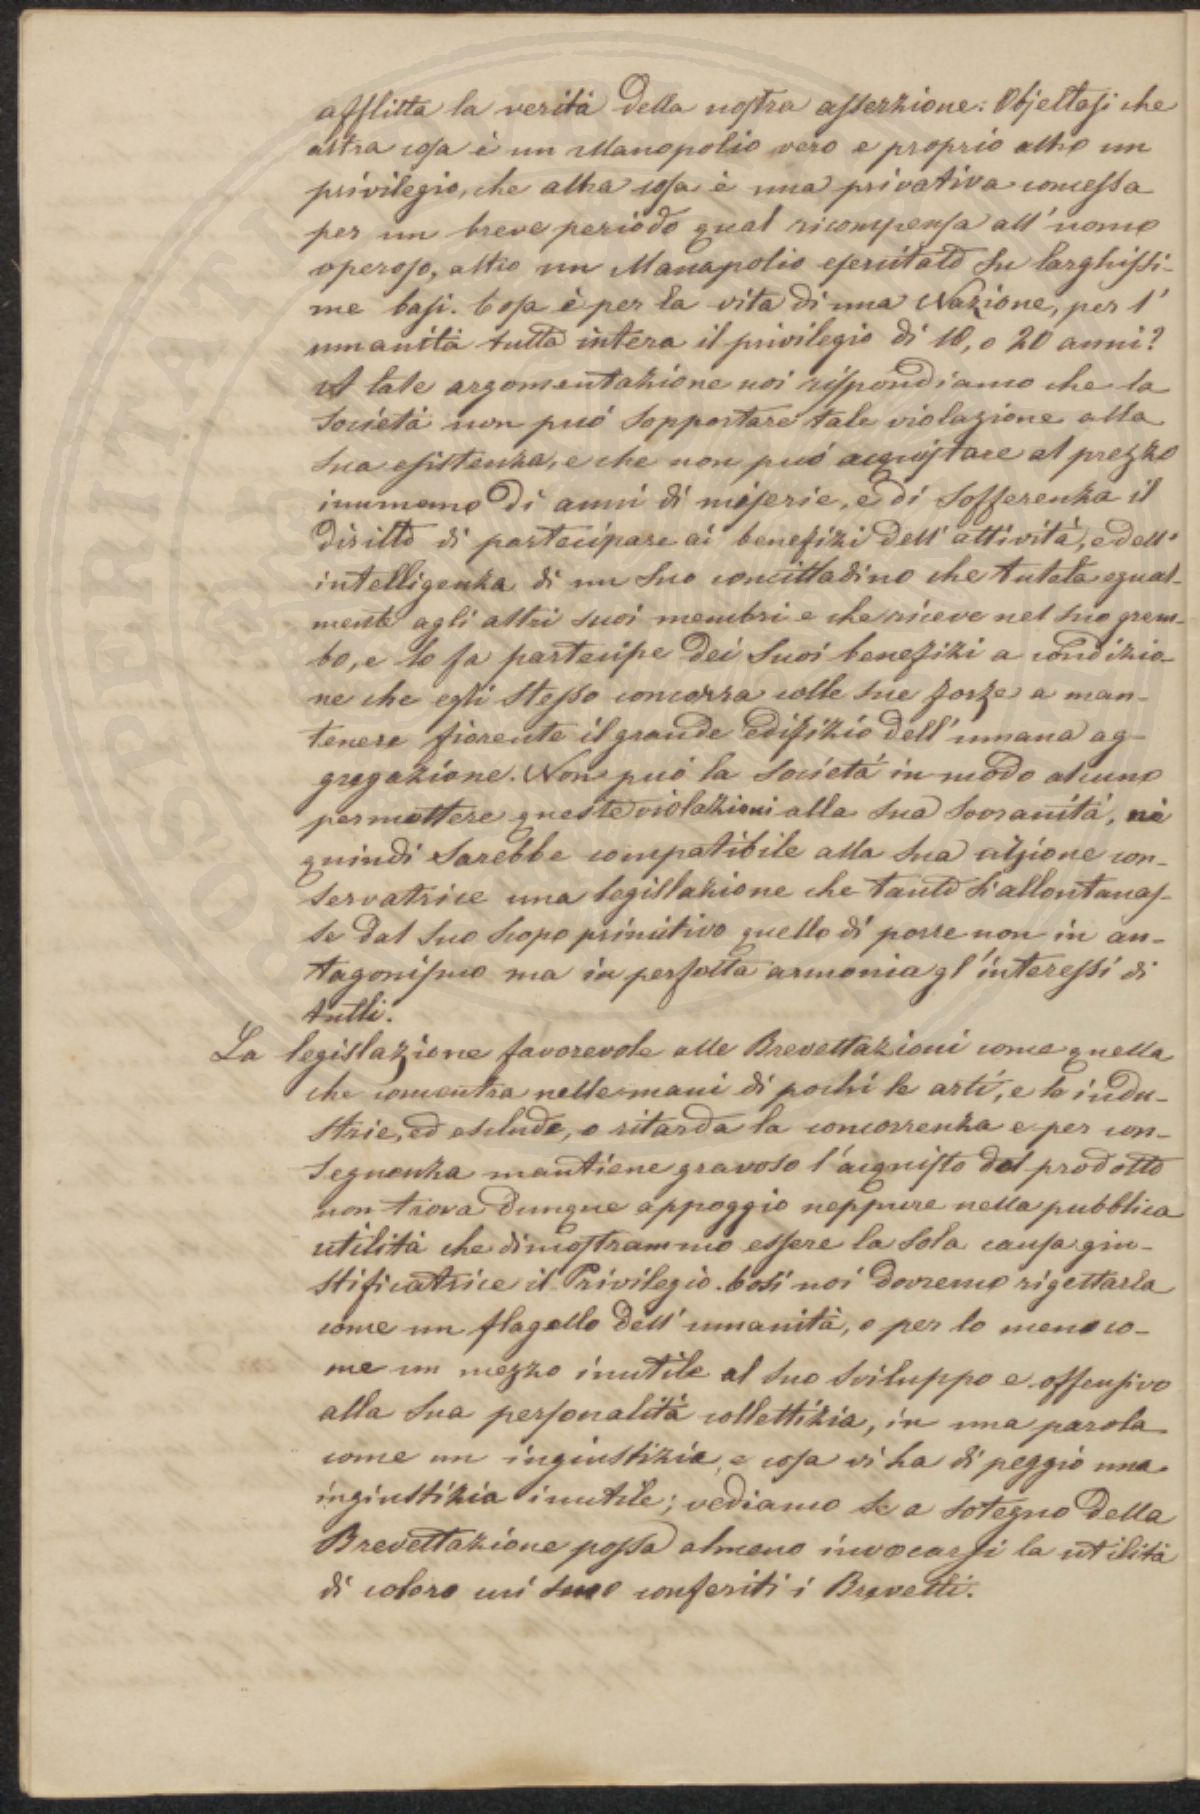 afflitta la verità della nostra asserzione: Objettasi che
altra cosa è un Manopolio vero e proprio altro un
privilegio, che altra cosa è una privativa concessa
per un breve periodo qual ricompensa all'uomo
operoso, altro un Manapolio esercitato su larghissi-
me basi. Cosa è per la vita di una Nazione, per l'
umanità tutta intera il privilegio di 10, o 20 anni?
A tale argomentazione noi rispondiamo che la
Società non può sopportare tale violazione alla
sua esistenza, e che non può acquistare al prezzo
inumano di anni di miserie, e di sofferenza il
diritto di partecipare ai benefizi dell'attività, e dell'
intelligenza di un suo concittadino che tutela egual-
mente agli altri suoi membri e che riceve nel suo grem-
bo, e lo fa partecipe dei suoi benefizi a condizio-
ne che egli stesso concorra colle sue forze a man-
tenere fiorente il grande edifizio dell'umana ag-
gregazione. Non può la società in modo alcuno
permettere queste violazioni alla sua sovranità, nè
quindi sarebbe compatibile alla sua azione con-
servatrice una legislazione che tanto s'allontanas-
se dal suo scopo primitivo quello di porre non in an-
tagonismo ma in perfetta armonia gl'interessi di
tutti.
La legislazione favorevole alle Brevettazioni come quella
che concentra nelle mani di pochi le arti, e le indu-
strie, ed esclude, o ritarda la concorrenza e per con-
seguenza mantiene gravoso l'acquisto del prodotto
non trova dunque appoggio neppure nella pubblica
utilità che dimostrammo essere la sola causa giu-
stificatrice il Privilegio. Così noi dovremo rigettarla
come un flagello dell'umanità, o per lo meno co-
me un mezzo inutile al suo sviluppo e offensivo
alla sua personalità collettizia, in una parola
come un ingiustizia, e cosa vi ha di peggio una
ingiustizia inutile; vediamo se a sotegno della
Brevettazione possa almeno invocarsi la utilità
di coloro cui sono conferiti i Brevetti.
PROSPERITATI PUBL